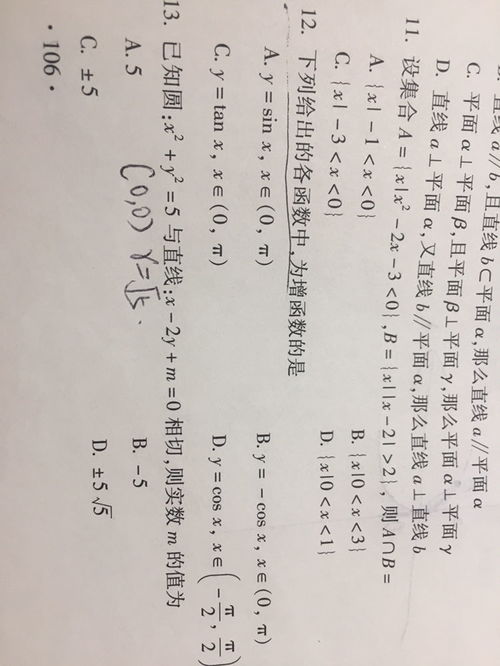 直线a∥b,且直线b⊂平面α,那么直线a∥平面α
C. 平面α⊥平面β,且平面β⊥平面γ,那么平面α⊥平面γ
D. 直线a⊥平面α,又直线b∥平面α,那么直线a⊥直线b
11. 设集合A={x|x²-2x-3<0},B={x||x-2|>2},则A∩B=
A. {x|-1<x<0} B. {x|0<x<3}
C. {x|-3<x<0} D. {x|0<x<1}
12. 下列给出的各函数中,为增函数的是
A. y=sin x, x∈(0, π) B. y=-cos x, x∈(0, π)
C. y=tan x, x∈(0, π) D. y=cos x, x∈(-π/2, π/2)
13. 已知圆:x²+y²=5与直线:x-2y+m=0相切,则实数m的值为
A. 5 B. -5
(0,0) r=√5.
C. ±5 D. ±5√5
·106·